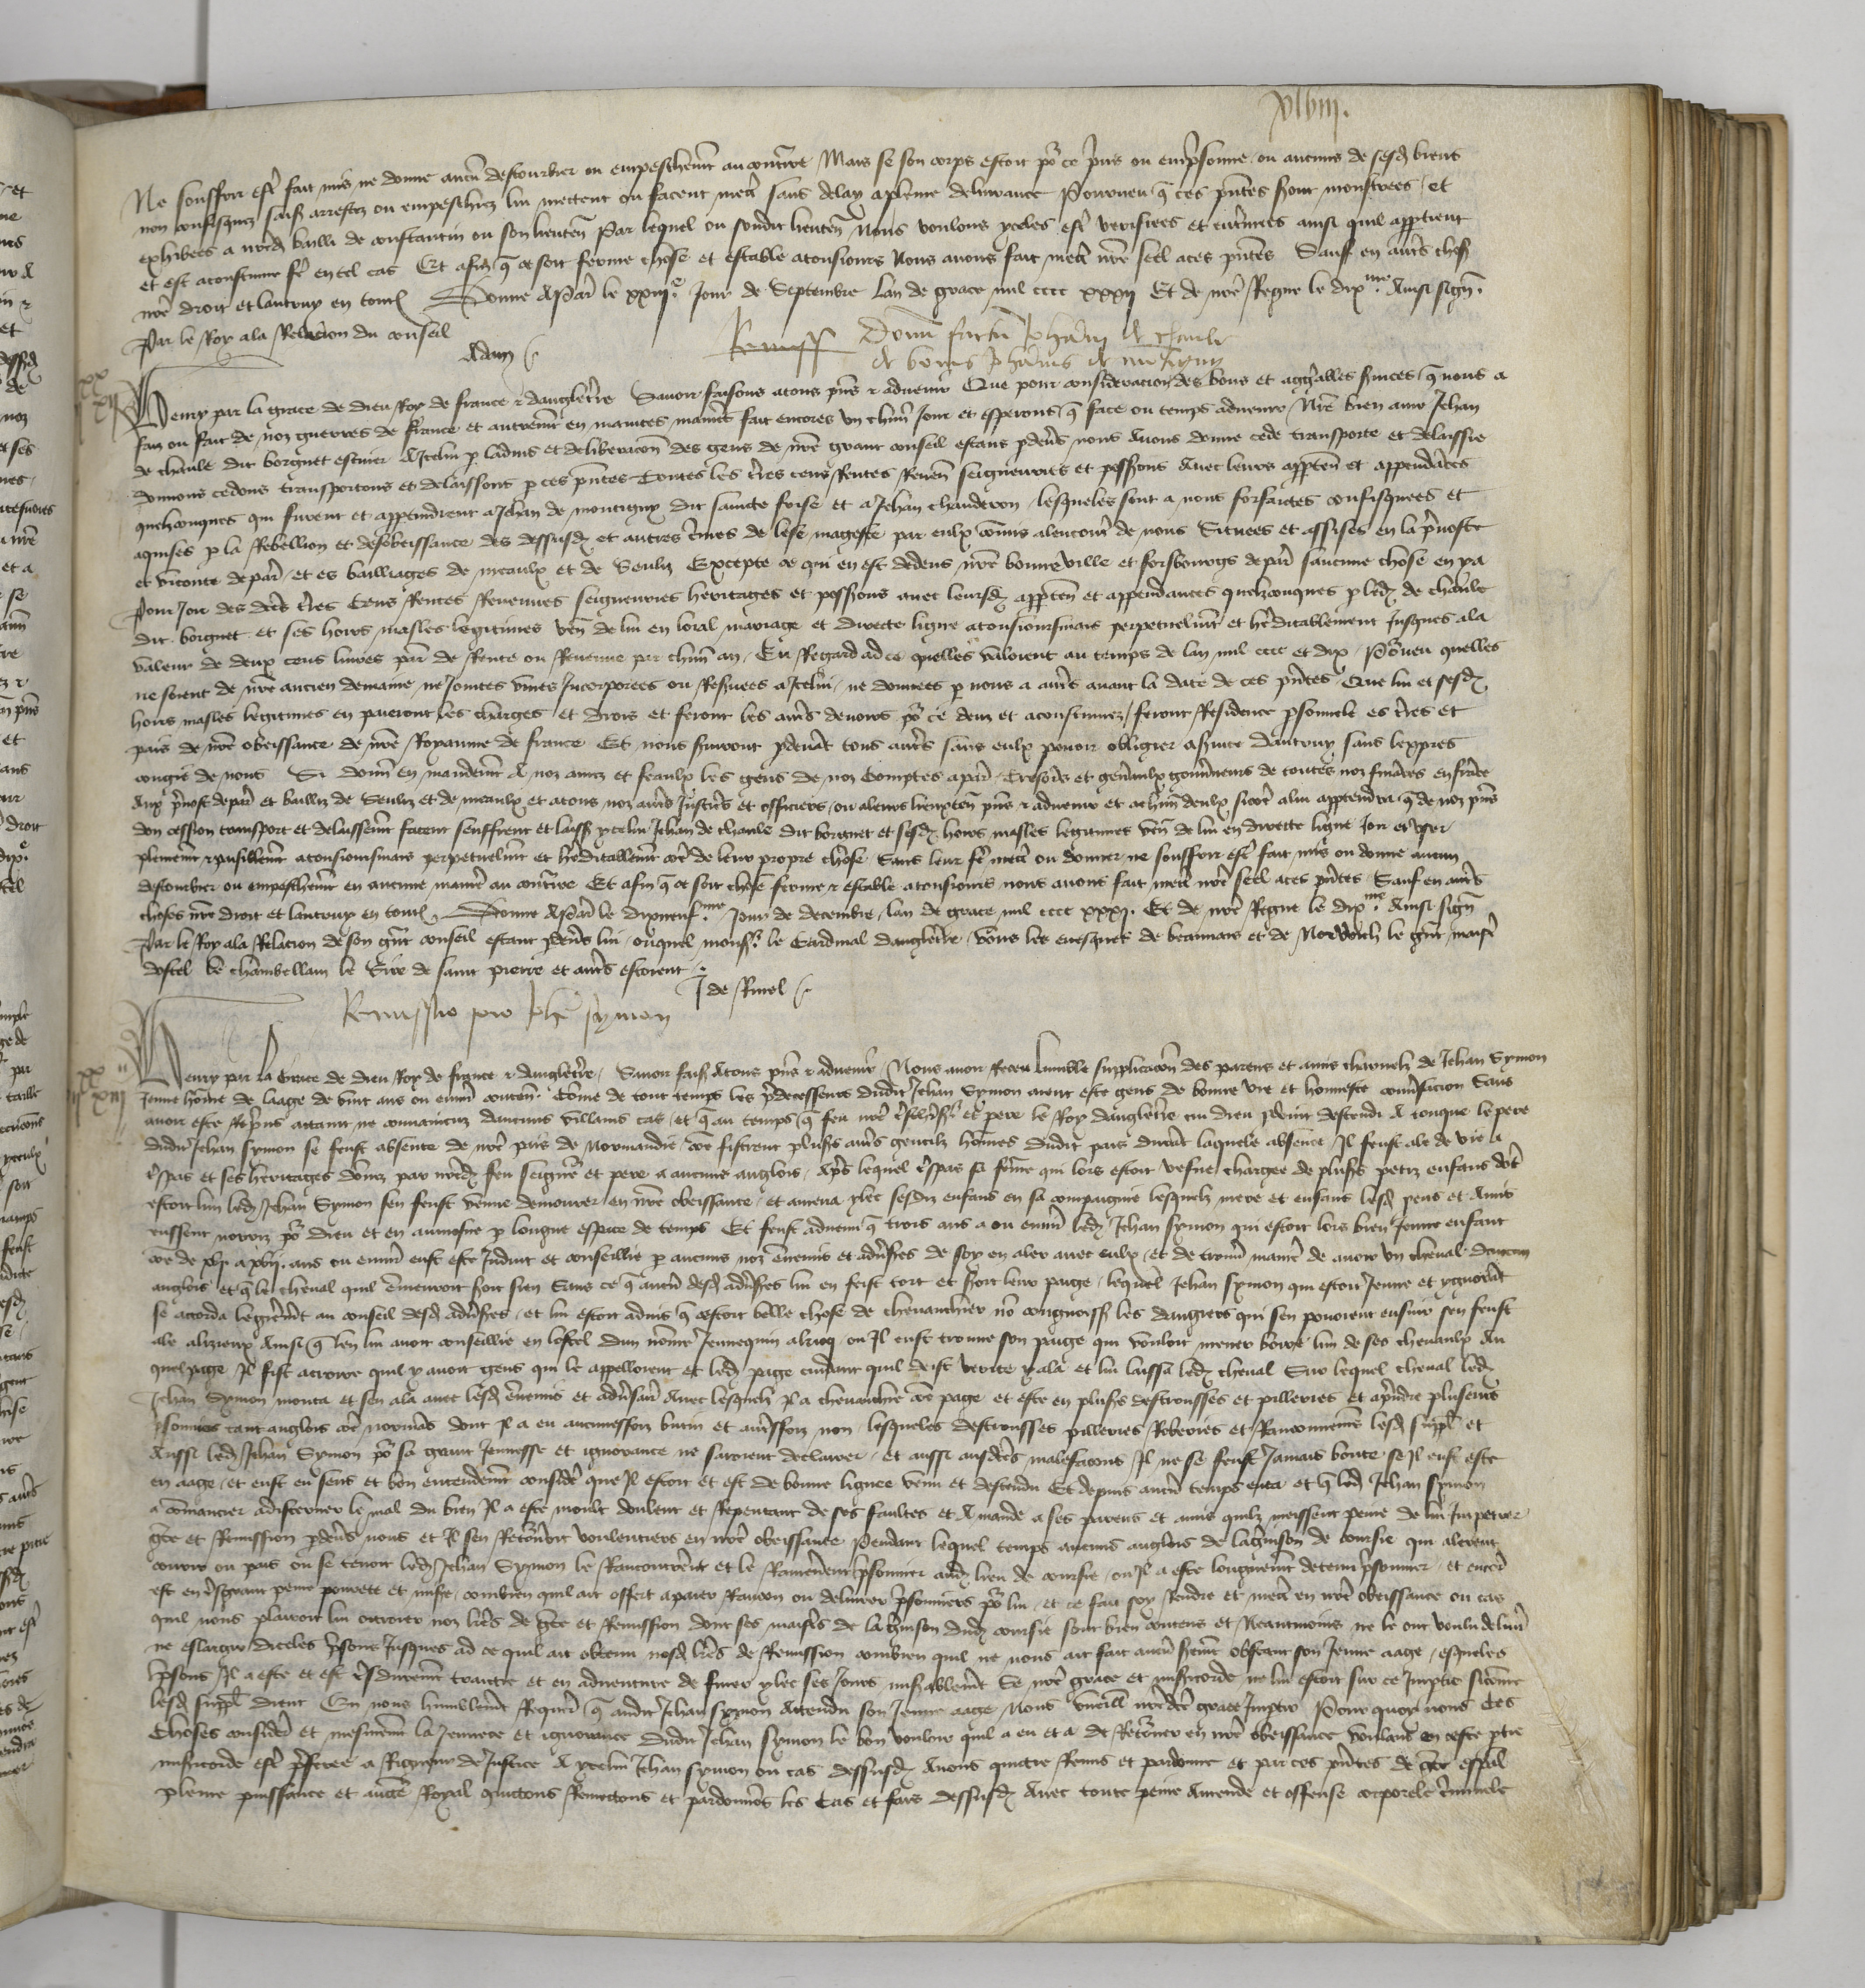 xlviii.
Ne souffrir estr fait mis ne donne aucun destourbier ou empeschement au contraire Mais se son corps estoit pour ce prins ou emprisonne ou aucuns de sesd biens
non confisquez saisiz arrestez ou empeschez lui mettent ou facent mectre sans delay a plaine delivrance Pourveu que ces presentes soient monstrees et
exhibees a nostred bailli de constantin ou son lieuten Par lequel ou sondit lieuten Nous voulons yceles estre verifiees et enterinees ainsi quil appartient
et est acoustume fere en tel cas Et afin que ce soit ferme chose et estable a tousiours Nous avons fait mectre nostre seel a ces presentes Sauf en autres choses
nostre droit et lautruy en toutes Donne a Paris le xxiiie Jour de Septembre Lan de grace mil cccc xxxii Et de nostre Regne le dixme Ainsi signe
Par le Roy a la Relacion du conseil
Adam
Remiss Donum factum Johanni de Chaule
de bonis Johannis de montigny
Henry par la grace de dieu Roy de france et dangleterre Savoir faisons a tous presens et advenir Que pour consideracion des bons et aggreables services que nous a
faiz ou fait de noz guerres de france et autrement en maintes manieres fait encores un chascun Jour et esperons que face ou temps advenir Nostre bien ame Jehan
de chaule dit borgnet escuier A Icelui par ladvis et deliberacion des gens de nostre grant conseil estans pardevers nous Avons donne cede transporte et delaissie
donnons cedons transportons et delaissons par ces presentes Toutes les terres cens Rentes Revenues seigneuries et possessions Avec leurs apparten et appendances
quelconques qui furent et appendirent a Jehan de montigny dit saincte frise et a Jehan chauderon lesqueles sont a nous forfaictes confisquees et
aquises par la Rebellion et desobeissance des dessusd et autres crimes de lese mageste par eulx commis alencontre de nous Situees et assises en la prevoste
et viconte de paris et es bailliages de meaulx et de Senliz Excepte ce qui en est dedens nostre bonne ville et forsbourgs de paris saucune chose en y a
Pour Joir des dictes terres Cens Rentes Revenues seigneuries heritages et possessions avec leursd apparten et appendances quelzconques par led de chaule
dit borgnet et ses hoirs masles legitimes venans de lui en loial mariage et directe ligne a tousioursmais perpetuelment et hereditablement Jusques a la
valeur de deux cens livres parisis de Rente ou Revenue par chascun an Eu Regard ad ce quelles valoient au temps de lan mil cccc et dix Pourveu quelles
ne soient de nostre ancien demaine ne Jointes unies Incorporees ou Reservees a Icelui ne donnees par nous a autres avant la date de ces presentes Que lui et sesd
hoirs masles legitimes en paieront les charges et drois et feront les autres devoirs pour ce deuz et acoustumez feront Residence personnele es terres et
pais de nostre obeissance de nostre Royaume de france Et nous serviront pardevant tous autres sans eulx povoir obligier a service dautruy sans lexpres
congie de nous Si donnons en mandement A noz amez et feaulx les gens de noz Comptes a paris Tresoriers et generaulx gouverneurs de toutes noz finances en france
Aux prevost de paris et bailliz de Senliz et de meaulx et a tous noz autres Justiciers et officiers ou a leurs lieuxten presens et advenir et a chascun deulx si comme a lui appartendra que de noz presens
don cession transport et delaissement facent seuffrent et laissent ycelui Jehan de chaule dit borgnet et sesd hoirs masles legitimes venans de lui en directe ligne Joir et user
plenement et paisiblement a tousioursmais perpetuelment et hereditablement comme de leur propre chose Sans leur fere mectre ou donner ne souffrir estre fait mis ou donne aucun
destourbier ou empeschement en aucune maniere au contraire Et afin que ce soit chose ferme et estable a tousiours nous avons fait mectre nostre seel a ces presentes Sauf en autres
choses nostre droit et lautruy en toutes Donne a Paris le dixneufme Jour de decembre lan de grace mil cccc xxxi. Et de nostre Regne le dixme Ainsi signe
Par le Roy a la Relacion de son grant conseil estant pardevers lui ouquel monsr le Cardinal dangleterre Vous les evesques de beauvais et de Norwich le grant maistre
dostel le chambellam le Sire de saint pierre et autres estoient
J de Rinel
Remissio pro Johanne Symon
Henry par la Grace de dieu Roy de france et dangleterre Savoir faisons A tous presens et advenir Nous avoir receu humble supplicacion des parens et amis charnelz de Jehan Symon
Jeune homme de laage de vint ans ou environ contenant Comme de tout temps les predecesseurs dudit Jehan Symon aient este gens de bonne vie et honneste conversacion Sans
avoir este Reprins attains ne convaincuz daucuns villains cas et que au temps que feu nostre treschier seigneur et pere le Roy dangleterre cui dieu pardoint descendi A touque le pere
dudit Jehan Symon se feust absente de nostre pais de Normandie comme firent plusieurs autres gentilz hommes dudit pais durant laquele absence Il feust ale de vie a
trespas et ses heritages donnez par nostred feu seigneur et pere a aucuns anglois Apres lequel trespas sa femme qui lors estoit vesve chargee de plusieurs petiz enfans dont
estoit lun led Jehan Symon sen feust venue demourer en nostre obeissance et amena ylec sesdiz enfans en sa compaignie lesquelz mere et enfans lesd parens et Amis
eussent nourriz pour dieu et en aumosne par longue espace de temps Et feust advenu que trois ans a ou environ led Jehan Symon qui estoit lors bien Jeune enfant
comme de xvi a xvii. ans ou environ eust este Induit et conseillie par aucuns noz ennemis et adversaires de soy en aler avec eulx et de trouver maniere de avoir un cheval daucun
anglois et que le cheval quil emmenroit soit sien Sans ce que aucun desd adversaires lui en feist tort et seroit leur paige lequel Jehan Symon qui estoit Jeune et ygnorant
se accorda legierement au conseil desd adversaires et lui estoit advis que cestoit belle chose de chevauchier non congnoissant les dangiers qui sen povoient ensuir sen feust
ale a lizieux Ainsi que len lui avoit conseillie en lostel dun nomme Jennequin ou Il eust trouve son paige qui vouloit mener boire lun de ses chevaulx Au
quel page Il fist acroire quil y avoit gens qui le appelloient et led page cuidant quil deist verite y ala et lui laissa led cheval Sur lequel cheval led
Jehan Symon monta et sen ala avec lesd ennemis et adversaires Avec lesquelz Il a chevauchie comme page et este en plusieurs destrousses et pilleries et a prendre plusieurs
personnes tant anglois comme normans dont Il a eu aucunesfoiz butin et autresfoiz non lesqueles destrousses pilleries Roberies et Raenconnemens lesd suppl et
Aussi led Jehan Symon pour sa grant Jeunesse et ignorance ne saroient declairer et aussi ausdictes malefacons Il ne se feust Jamais boute se Il eust este
en aage et eust eu sens et bon entendement considere que Il estoit et est de bonne lignee venu et descendu Et depuis aucun temps enca et que led Jehan Symon
a commancier a discerner le mal du bien Il a este moult doulent et Repentant de ses faultes et A mande a ses parens et amis quilz meissent peine de lui Impetrer
grace et Remission pardevers nous et Il sen Retourneroit voulentiers en nostre obeissance Pendant lequel temps aucuns anglois de la garnison de coursie qui aloient
courir ou pais ou se tenoit led Jehan Symon le Rancontrerent et le Ramenerent prisonnier aud lieu de coursie ou Il a este longuement detenu prisonnier et encores
est en tresgrant peine povrete et misere combien quil ait offert a paier Rancon ou delivrer prisonniers pour lui et ce fait soy Rendre et mectre en nostre obeissance ou cas
quil nous plairoit lui octroier noz lectres de grace et Remission dont ses maistres de la garnison dud coursie sont bien contens et Neantmoins ne le ont voulu delivrer
ne eslargir diceles prisons Jusques ad ce quil ait obtenu nosd lectres de Remission combien quil ne nous ait fait aucun serement obstant son Jeune aage esqueles
prisons Il a este et est tresdurement traictie et en adventure de finer ylec ses Jours miserablement Se nostre grace et misericorde ne lui estoit sur ce Impartie si comme
lesd suppl dient En nous humblement Requerant que audit Jehan Symon Attendu son Jeune aage Nous vueillons nostre dicte grace Impartir Pour quoy nous Ces
Choses considerees et mesmement la Jeunece et ignorance dudit Jehan Symon le bon vouloir quil a eu et a de Retourner en nostre obeissance voulans en ceste partie
misericorde estre preferee a Rigueur de Justice A ycelui Jehan Symon ou cas dessusd Avons quictie Remis et pardonne et par ces presentes de grace especial
pleine puissance et auctorite Royal quictons Remettons et pardonnons les Cas et fais dessusd Avec toute peine Amende et offense corporele criminele